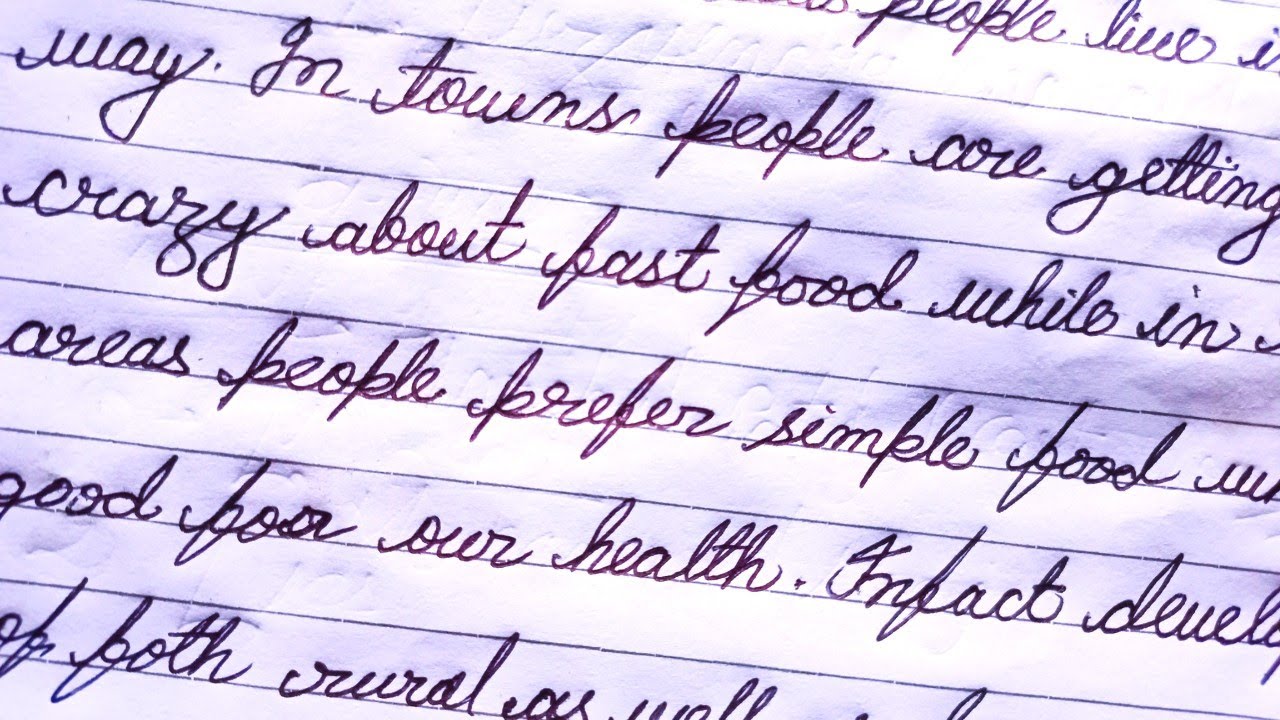 people live i
way. In towns people are getting
crazy about fast food while in
areas people prefer simple food wh
good foor our health. Infact develop
of both rural as well